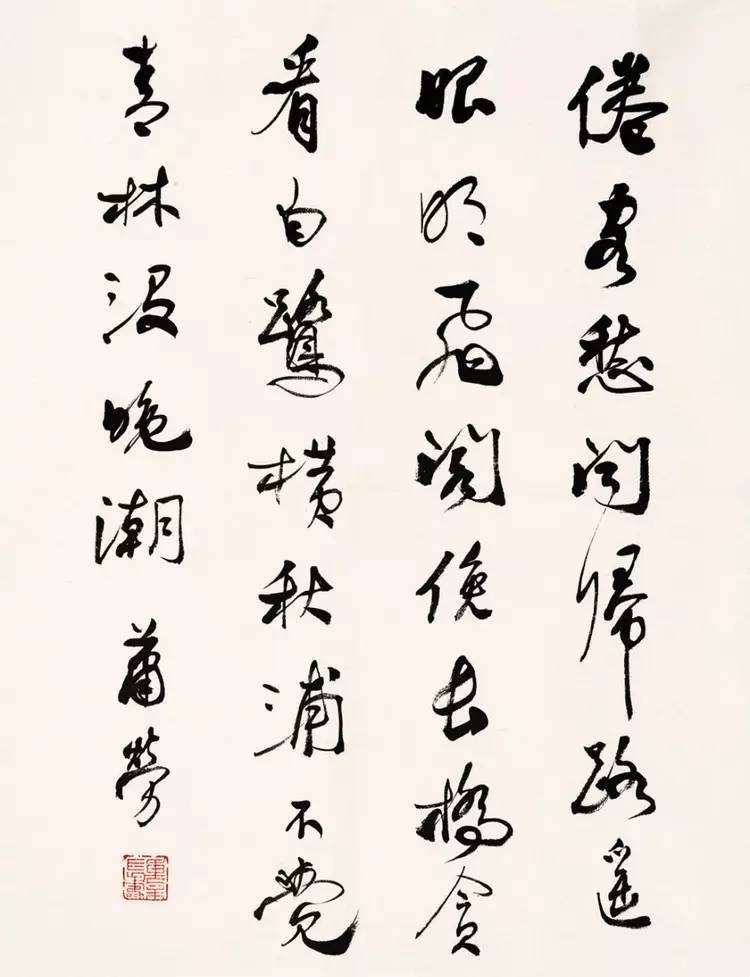 倦客愁聞歸路遥
眼明飛閣俛長橋貪
看白鷺横秋浦不覺
青林没晚潮 蕭勞